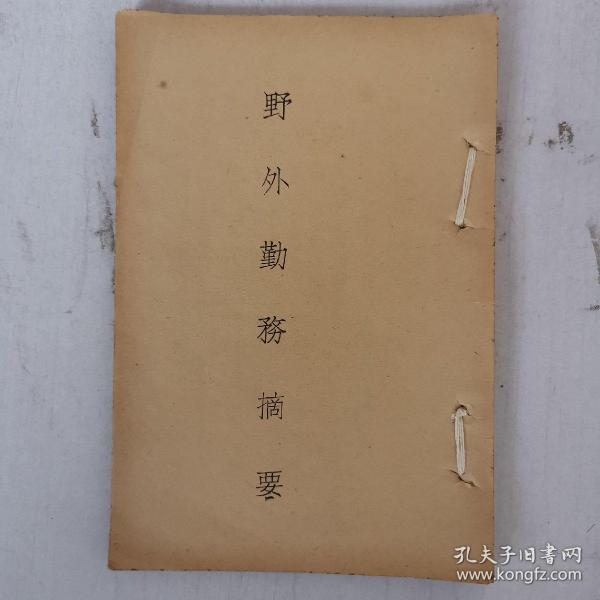 野外勤務摘要
孔夫子旧書网
www.kongfz.com